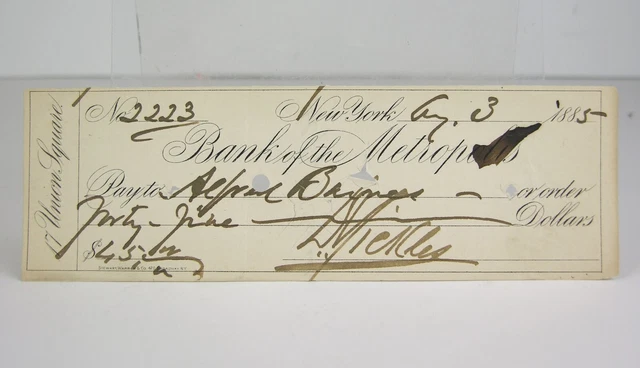 17 Union Square.
No 2223 New York Aug. 3 1885
Bank of the Metropolis
Pay to Alfred or order
Forty-five Dollars
$45.